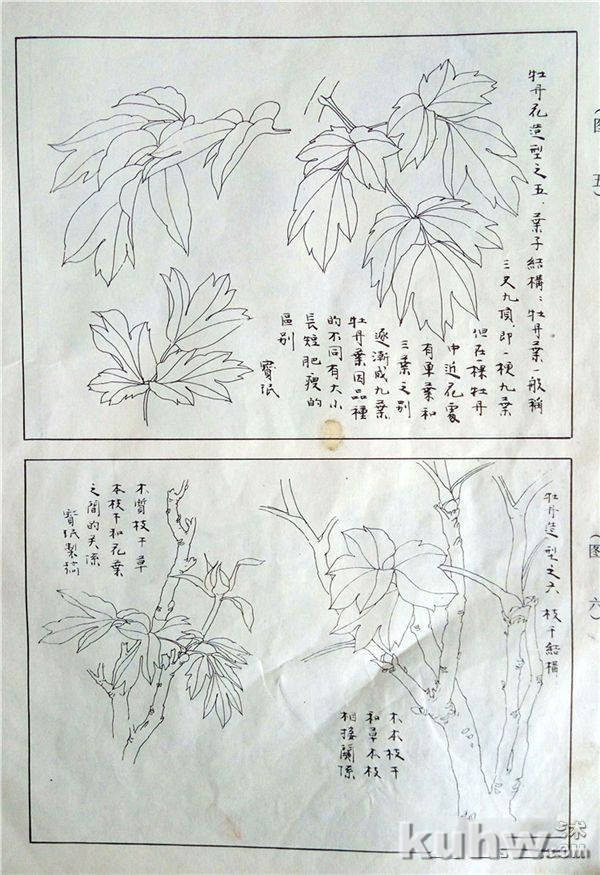 (图 五)
牡丹花造型之五．葉子結構：牡丹葉一般稱
三叉九頂，即一梗九葉
但在一棵牡丹
中近花處
有單葉和
三葉之别
逐漸成九葉
牡丹葉因品種
的不同有大小
長短肥瘦的
區别
寶珉
(图 六)
牡丹造型之六 枝干結構
木本枝干
和草木枝
相接關係
木質枝干草
本枝干和花葉
之間的关係
寶珉製稿
kuhw